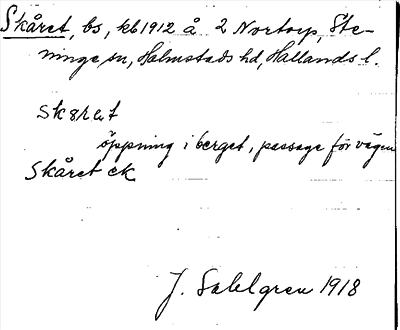 Skåret, bs, kb 1912 å 2 Nortorp, Ste-
ninge sn, Halmstads hd, Hallands l.
skæret
öppning i berget, passage för vägen
Skåret ek
J. Sahlgren 1918